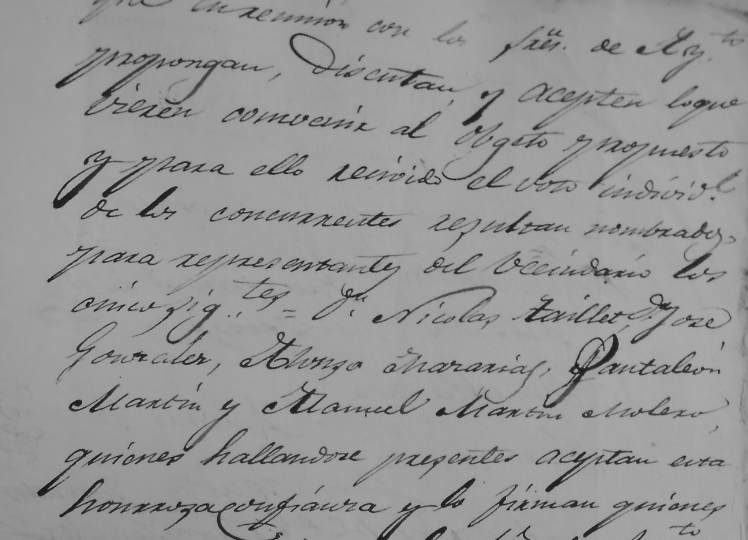 que en reunion con los Sres. de Ay.to
propongan, discutan y acepten loque
vieren convenir al obgeto propuesto
y para ello reunido el voto individ.l
de los concurrentes resultan nombrados
para representantes del Vecindario los
cinco sig.tes = D.n Nicolas Taillet, D.n Jose
Gonzalez, Alonso Mazarias, Pantaleón
Martin y Manuel Martin Molero,
quienes hallandose presentes aceptan esta
honrroza confianza y lo firman quienes